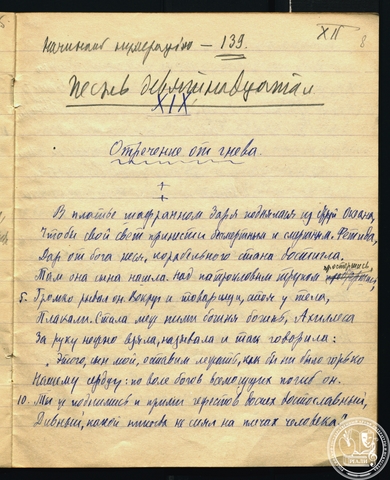 XII
8
Начинать нумерацию — 139.
Песнь девятнадцатая
XIX
Отречение от гнева.
В платье шафранном Заря поднялася из струй Океана,
Чтобы свой свет принести бессмертным и смертным. Фетида,
Дар от бога неся, корабельного стана достигла.
Там она сына нашла над Патрокловым трупом простершись,
5. Громко рыдал он. Вокруг и товарищи, стоя у тела,
Плакали. Стала меж ними богиня богинь, Ахиллеса
За руку нежно взяла, называла и так говорила:
„Этого, сын мой, оставим лежать, как бы ни было горько
Нашему сердцу: по воле богов всемогущих погиб он.
10. Ты ж поднимись и прими доспехов достославный,
Дивный, какой никогда не сиял на плечах человека."